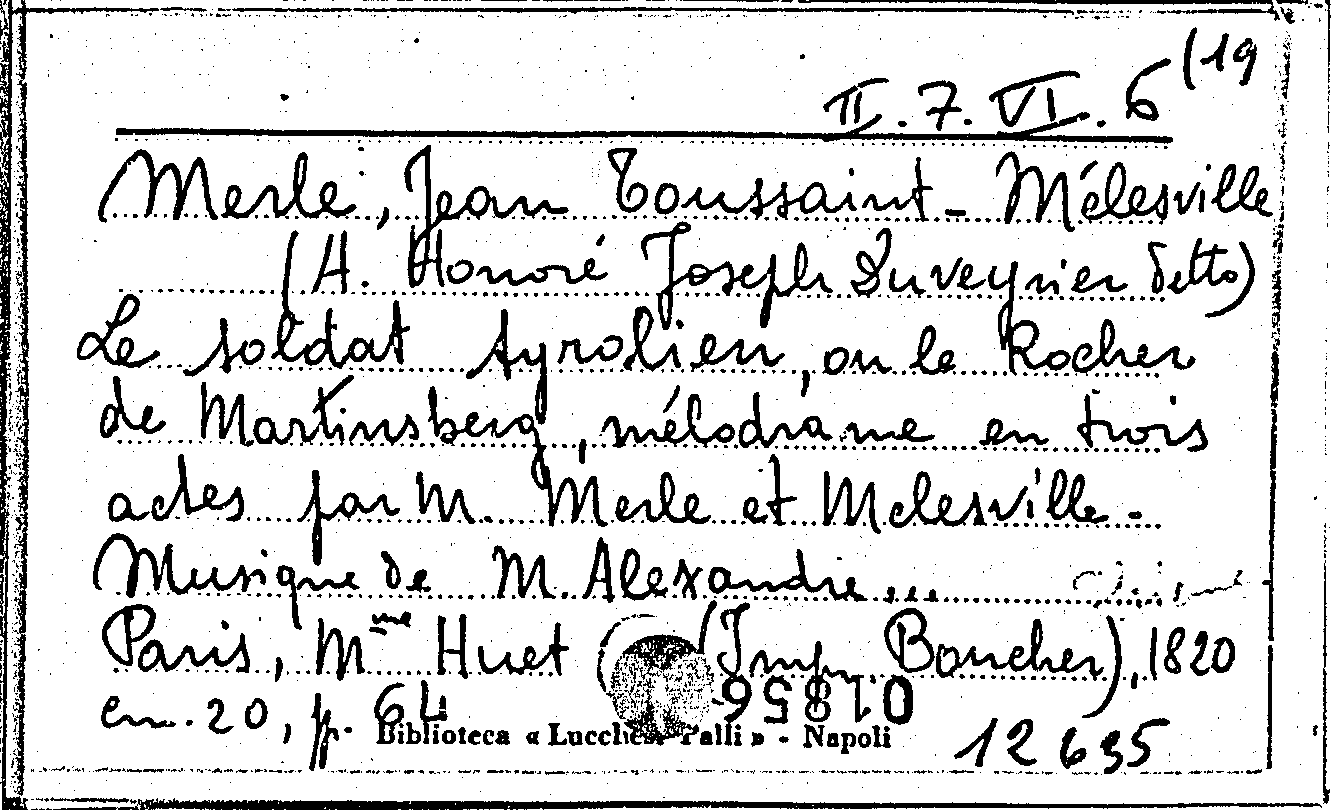 II. 7. VI. 6 (19
Merle, Jean Toussaint - Mélesville
(A. Honoré Joseph Duveyrier detto)
Le soldat tyrolien, ou le Rocher
de Martinsberg, mélodrame en trois
actes par M. Merle et Melesville -
Musique de M. Alexandre...
Paris, Mme Huet (Imp. Boucher), 1820
cm. 20, p. 64
018556
Biblioteca « Lucchesi Palli » - Napoli
12635